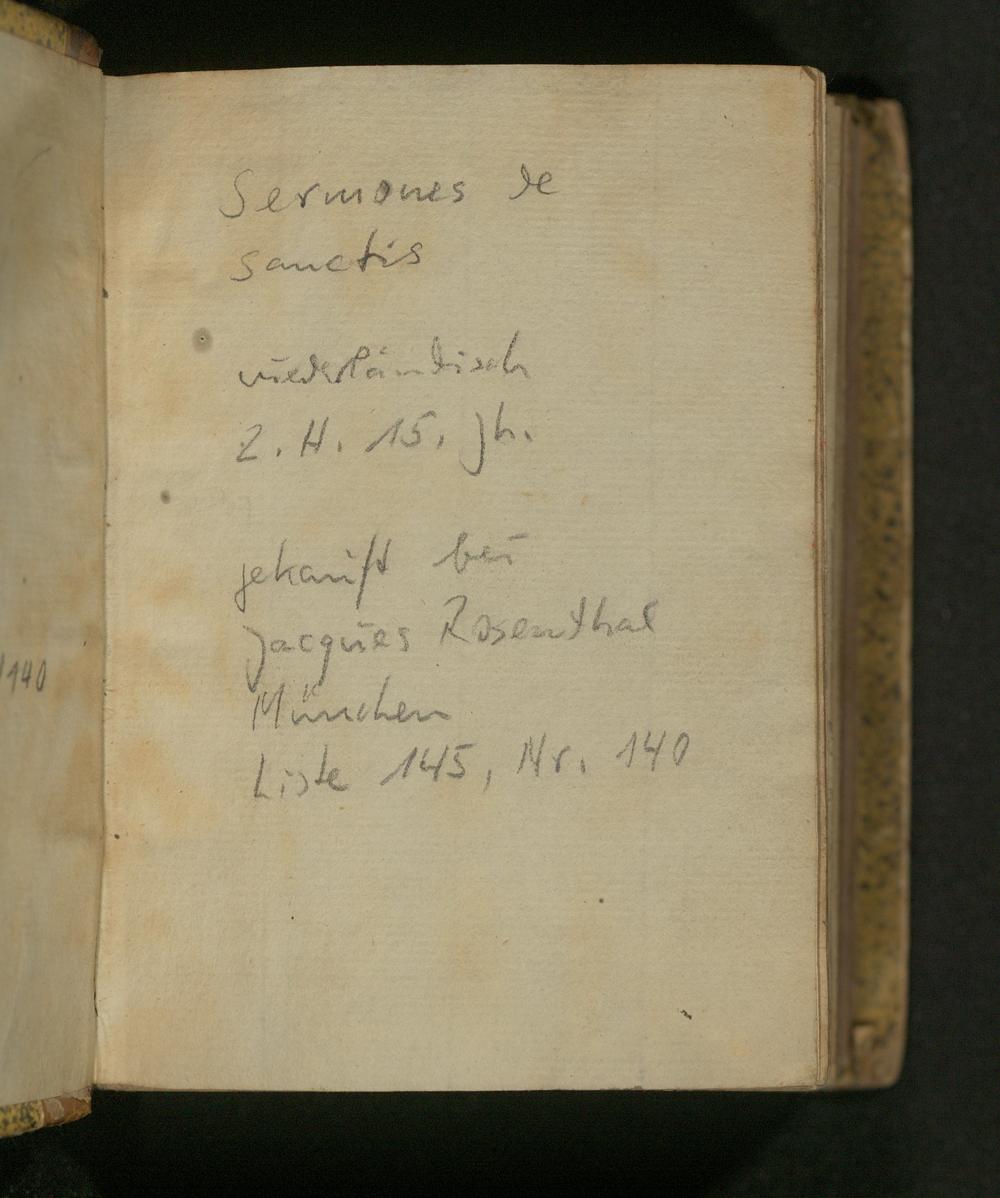 Sermones de
sanctis
niederländisch
2. H. 15. Jh.
gekauft bei
Jacques Rosenthal
/140
München
Liste 145, Nr. 140